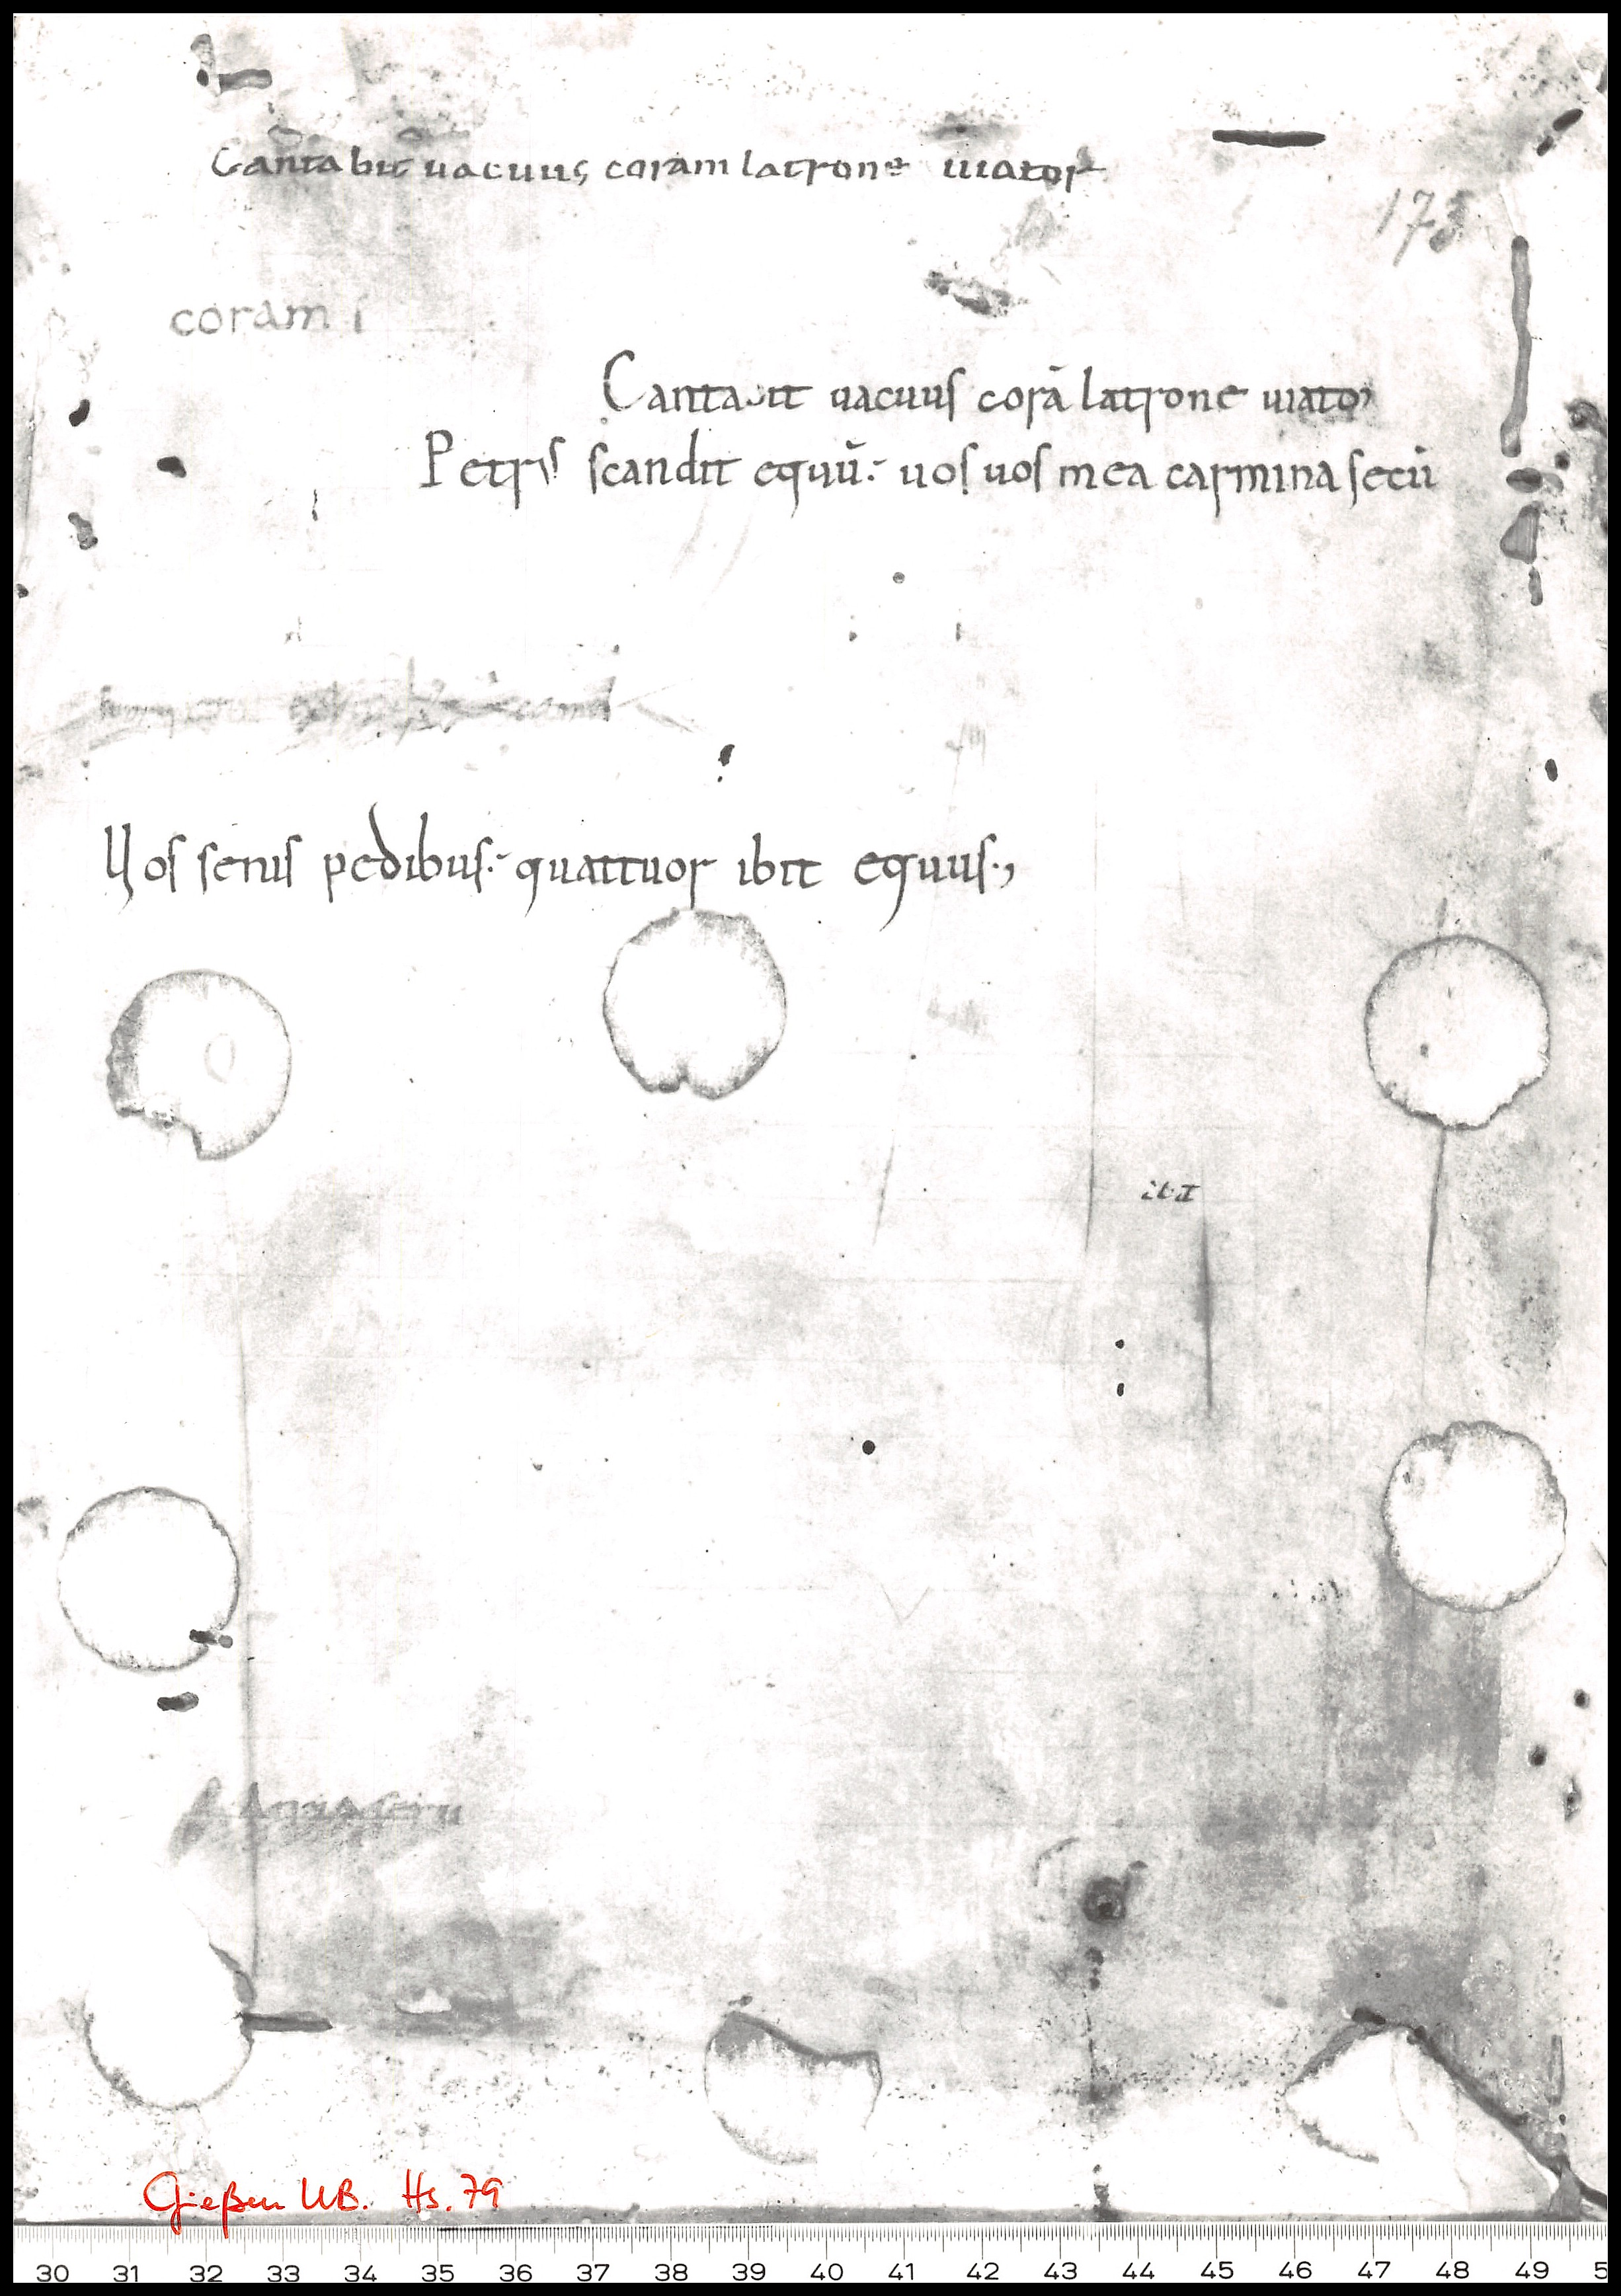 Cantabit uacuus coram latrone uiator
175
coram l
Cantabit uacuus corā latrone uiator
Petrus scandit equū: uos uos mea carmina secū
Uos senis pedibus: quattuor ibit equus.,
ibit
Gießen UB. Hs. 79
30 31 32 33 34 35 36 37 38 39 40 41 42 43 44 45 46 47 48 49 5